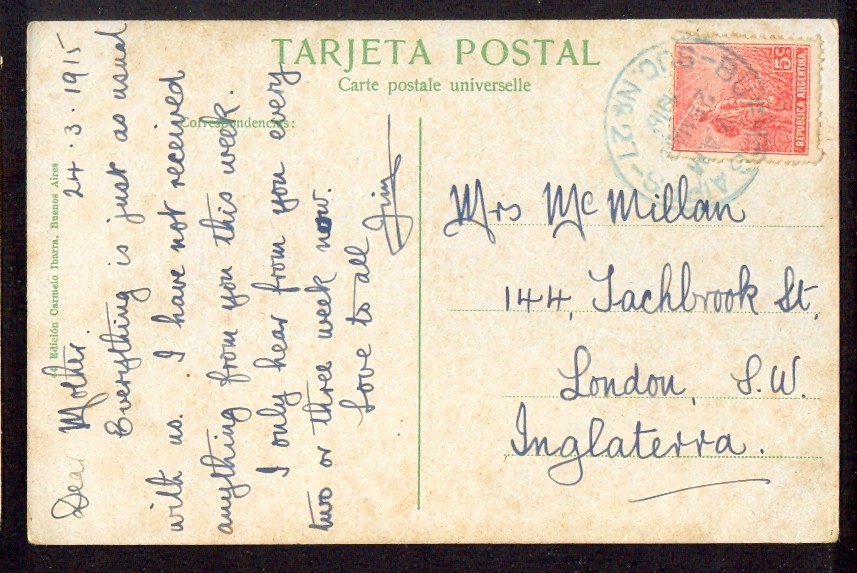 TARJETA POSTAL
Carte postale universelle
Correspondencias:
24 Edición Carmelo Ibarra, Buenos Aires
24·3·1915
Dear Mother.
Everything is just as usual
with us. I have not received
anything from you this week.
I only hear from you every
two or three week now.
Love to all
Jim
5c
REPUBLICA ARGENTINA
SUC. No 27
Mrs McMillan
144, Tachbrook St,
London, S.W.
Inglaterra.